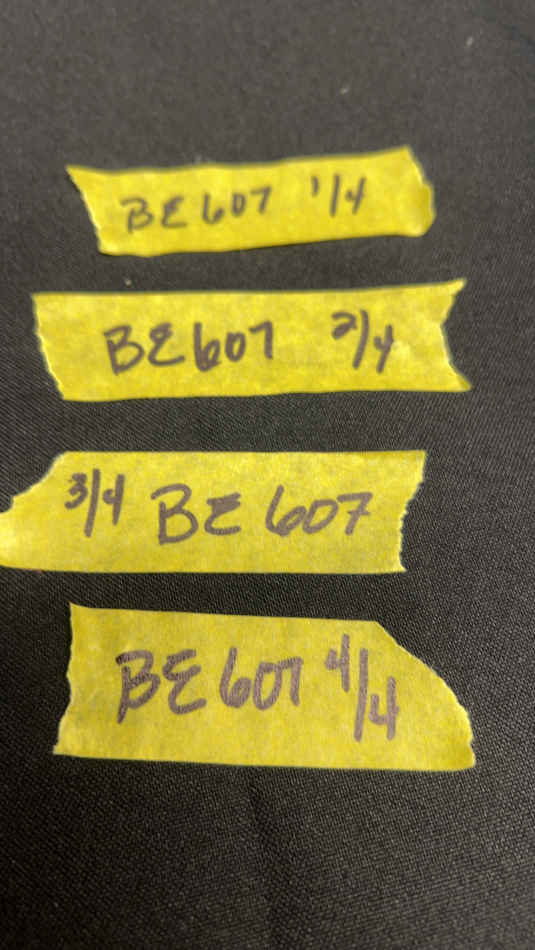 BE607 1/4
BE607 2/4
3/4 BE 607
BE607 4/4